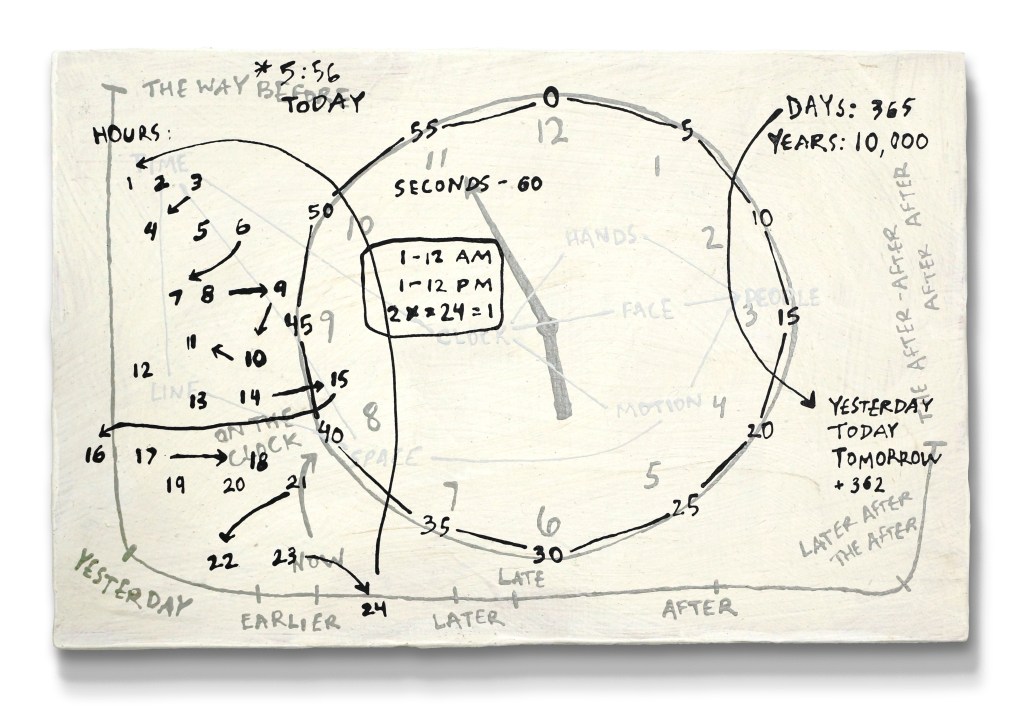 * 5:56
TODAY
THE WAY BEFORE
HOURS:
TIME
1 2 3
4 5 6
7 8 9
11 10
12
13 14 15
LINE
16 17 18
19 20 21
22 23
24
ON THE
CLOCK
NOW
0
5
10
15
20
25
30
35
40
45
50
55
12
1
2
3
4
5
6
7
8
9
10
11
SECONDS - 60
1-12 AM
1-12 PM
HANDS
FACE
PEOPLE
CLOCK
MOTION
SPACE
DAYS: 365
YEARS: 10,000
YESTERDAY
TODAY
TOMORROW
+ 362
THE AFTER-AFTER
AFTER AFTER
LATER AFTER
THE AFTER
YESTERDAY
EARLIER
LATER
LATE
AFTER